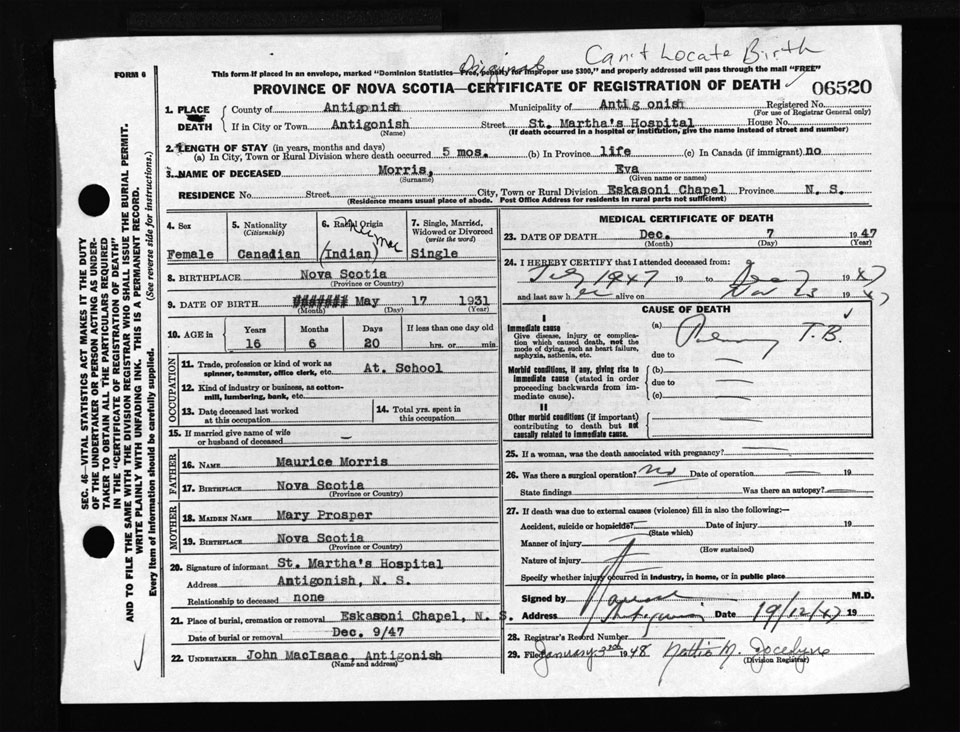 Can't Locate Birth
Original
FORM 6
This form if placed in an envelope, marked "Dominion Statistics—Free, penalty for improper use $300," and properly addressed will pass through the mail "FREE"
PROVINCE OF NOVA SCOTIA—CERTIFICATE OF REGISTRATION OF DEATH
06520
1. PLACE DEATH
County of Antigonish Municipality of Antigonish Registered No.
(For use of Registrar General only)
If in City or Town Antigonish Street St. Martha's Hospital House No.
(Name) (If death occurred in a hospital or institution, give the name instead of street and number)
2. LENGTH OF STAY (in years, months and days)
(a) In City, Town or Rural Division where death occurred 5 mos. (b) In Province life (c) In Canada (if immigrant) no
3. NAME OF DECEASED Morris, Eva
(Surname) (Given name or names)
RESIDENCE No. Street City, Town or Rural Division Eskasoni Chapel Province N. S.
(Residence means usual place of abode. Post Office Address for residents in rural parts not sufficient)
4. Sex
Female
5. Nationality
(Citizenship)
Canadian
6. Racial Origin
Mic Mac
(Indian)
7. Single, Married, Widowed or Divorced
(write the word)
Single
8. BIRTHPLACE Nova Scotia
(Province or Country)
9. DATE OF BIRTH May 17 1931
(Month) (Day) (Year)
10. AGE in
Years Months Days If less than one day old
16 6 20 hrs. or min.
OCCUPATION
11. Trade, profession or kind of work as spinner, teamster, office clerk, etc. At. School
12. Kind of industry or business, as cotton-mill, lumbering, bank, etc.
13. Date deceased last worked at this occupation
14. Total yrs. spent in this occupation
15. If married give name of wife or husband of deceased –
FATHER
16. NAME Maurice Morris
17. BIRTHPLACE Nova Scotia
(Province or Country)
MOTHER
18. MAIDEN NAME Mary Prosper
19. BIRTHPLACE Nova Scotia
(Province or Country)
20. Signature of informant St. Martha's Hospital
Address Antigonish, N. S.
Relationship to deceased none
21. Place of burial, cremation or removal Eskasoni Chapel, N. S.
Date of burial or removal Dec. 9/47
22. UNDERTAKER John MacIsaac, Antigonish
(Name and address)
MEDICAL CERTIFICATE OF DEATH
23. DATE OF DEATH Dec. 7 1947
(Month) (Day) (Year)
24. I HEREBY CERTIFY that I attended deceased from:
1947 19 to Dec 7 1947
and last saw her alive on Nov 23 1947
CAUSE OF DEATH
I
Immediate cause
Give disease, injury or complication which caused death, not the mode of dying, such as heart failure, asphyxia, asthenia, etc.
(a) T.B.
due to —
Morbid conditions, if any, giving rise to immediate cause (stated in order proceeding backwards from immediate cause).
(b) —
due to —
(c) —
II
Other morbid conditions (if important) contributing to death but not causally related to immediate cause.
25. If a woman, was the death associated with pregnancy? —
26. Was there a surgical operation? No Date of operation — 19
State findings Was there an autopsy? —
27. If death was due to external causes (violence) fill in also the following:—
Accident, suicide or homicide? Date of injury 19
(State which)
Manner of injury
(How sustained)
Nature of injury
Specify whether injury occurred in industry, in home, or in public place
Signed by M.D.
Address Antigonish Date 19/12/47 19
28. Registrar's Record Number
29. Filed January 3rd 1948 M. Jocelyne
(Division Registrar)
SEC. 46—VITAL STATISTICS ACT MAKES IT THE DUTY OF THE UNDERTAKER OR PERSON ACTING AS UNDERTAKER TO OBTAIN ALL THE PARTICULARS REQUIRED IN THE "CERTIFICATE OF REGISTRATION OF DEATH"
AND TO FILE THE SAME WITH THE DIVISION REGISTRAR WHO SHALL ISSUE THE BURIAL PERMIT.
WRITE PLAINLY WITH UNFADING INK. THIS IS A PERMANENT RECORD.
Every item of information should be carefully supplied. (See reverse side for instructions.)